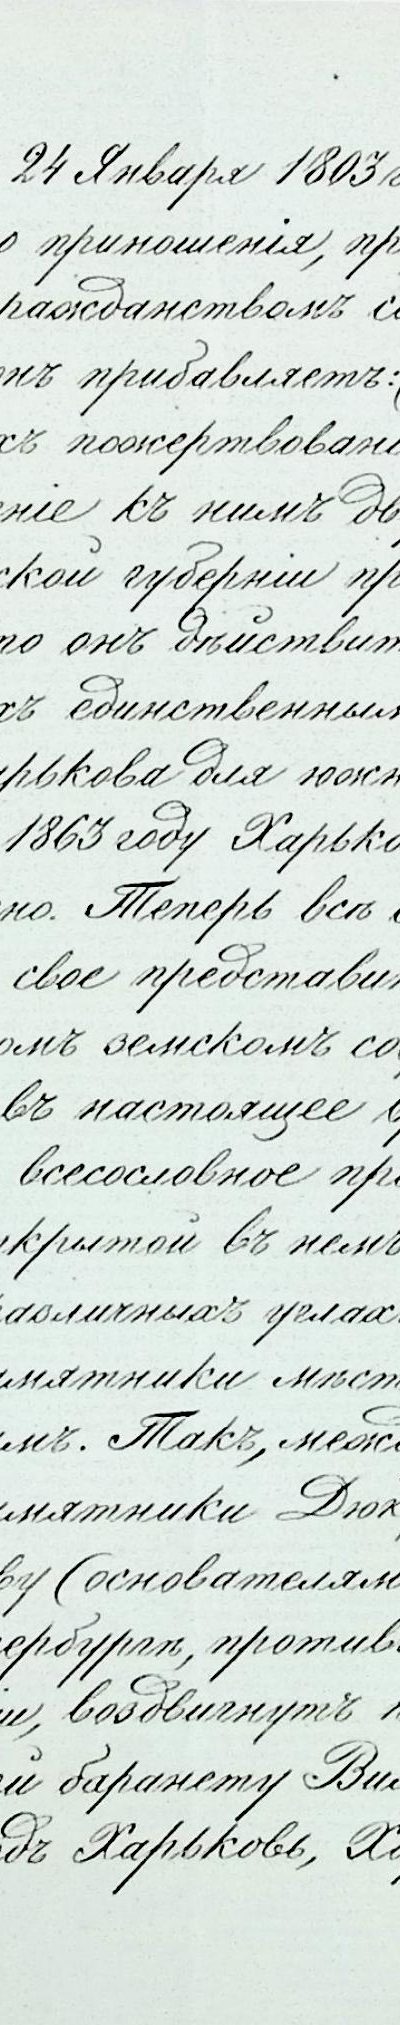 24 Января 1803 г
о приношенія, пр
ражданствомъ со
онъ прибавляетъ:
хъ пожертвовані
еніе къ нимъ дв
ской губерніи пр
то онъ дѣйствит
хъ единственным
арькова для южн
1863 году Харько
но. Теперь всѣ
свое представи
омъ земскомъ со
въ настоящее
всесословное пр
крытой въ немъ
различныхъ углах
амятники мѣст
мъ. Такъ, межд
амятники Дюк
ву (основателям
ербургѣ, против
іи, воздвигнутъ
й баранету Вил
дъ Харьковъ, Ха